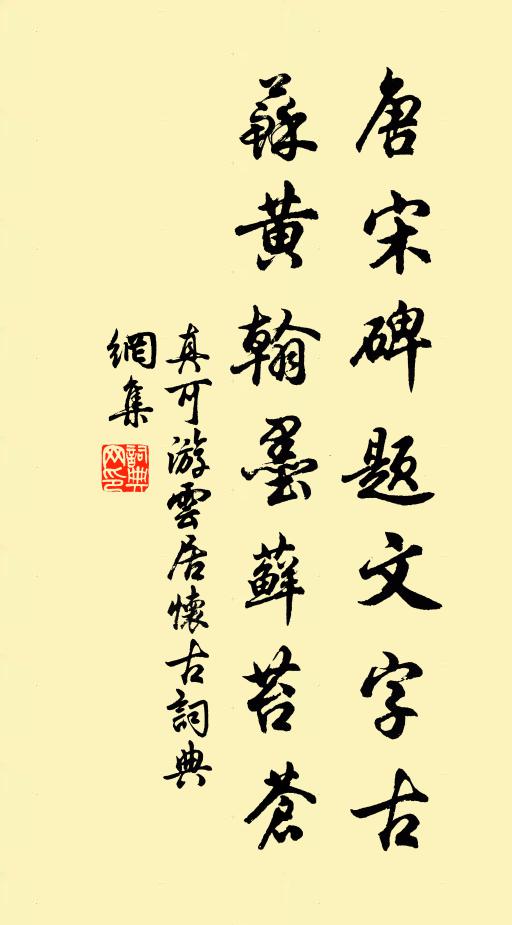 唐宋碑題文字古
蘇黃翰墨蘚苔蒼
真可游雲居懷古詞典
網集
詞典
网印